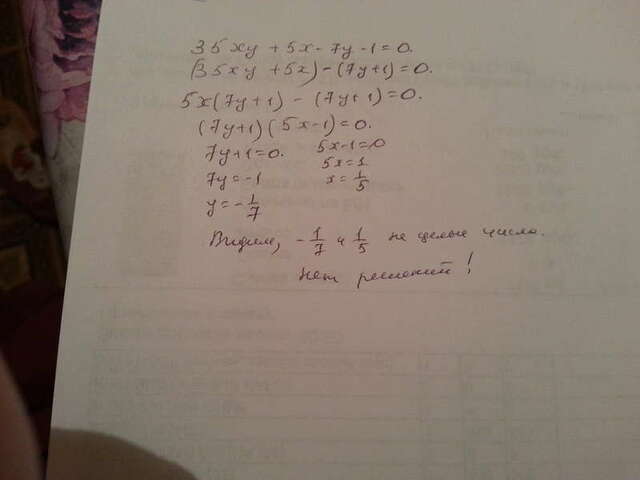 35xy + 5x - 7y - 1 = 0.
(35xy + 5x) - (7y+1) = 0.
5x(7y+1) - (7y+1) = 0.
(7y+1)(5x-1) = 0.
7y+1=0. 5x-1=0
5x=1
7y=-1 x=1/5
y=-1/7
Видим, -1/7 и 1/5 не целые число.
Нет решений!